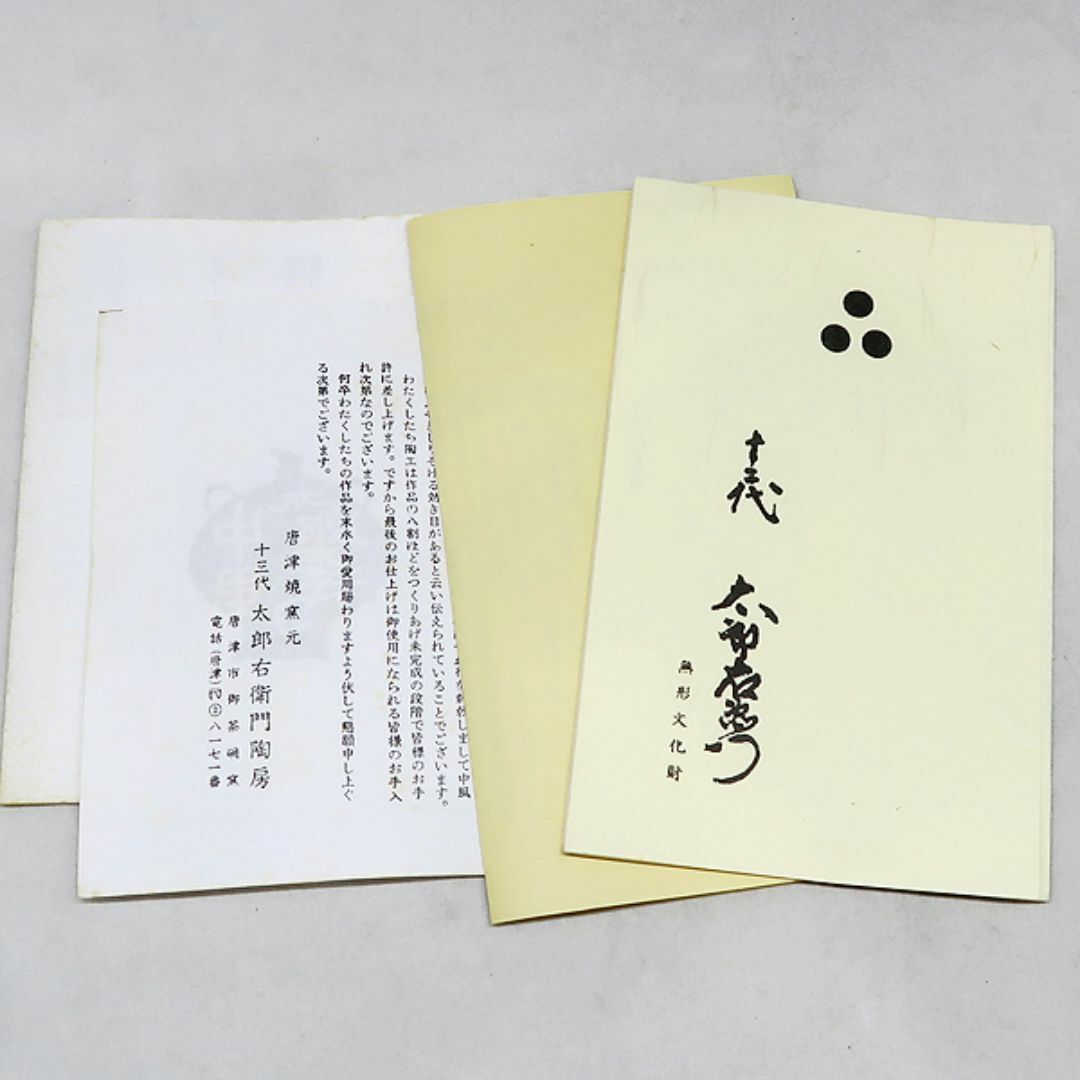 十三代
太郎右衛門
無形文化財
る効き目があると云い伝えられていることでございます。
わたくしたち陶工は作品の八割ほどをつくりあげ未完成の段階で皆様のお手
許に差し上げます。ですから最後のお仕上げは御使用になられる皆様のお手入
れ次第なのでございます。
何卒わたくしたちの作品を末永く御愛用賜わりますより伏して懇願申し上ぐ
る次第でございます。
唐津焼窯元
十三代 太郎右衛門陶房
唐津市御茶碗窯
電話(唐津)②八一七一番